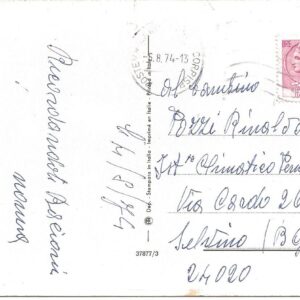 Ricordandoti Bacioni
nonna
14/8/74
Dep. Stampato in Italia - Imprimé en Italie - Printed in Italy
37877/3
.8.74-13
Al bambino
Pozzi Rinaldo
Ist° Climatico
Via Cardo 26
Selvino (BG
24020